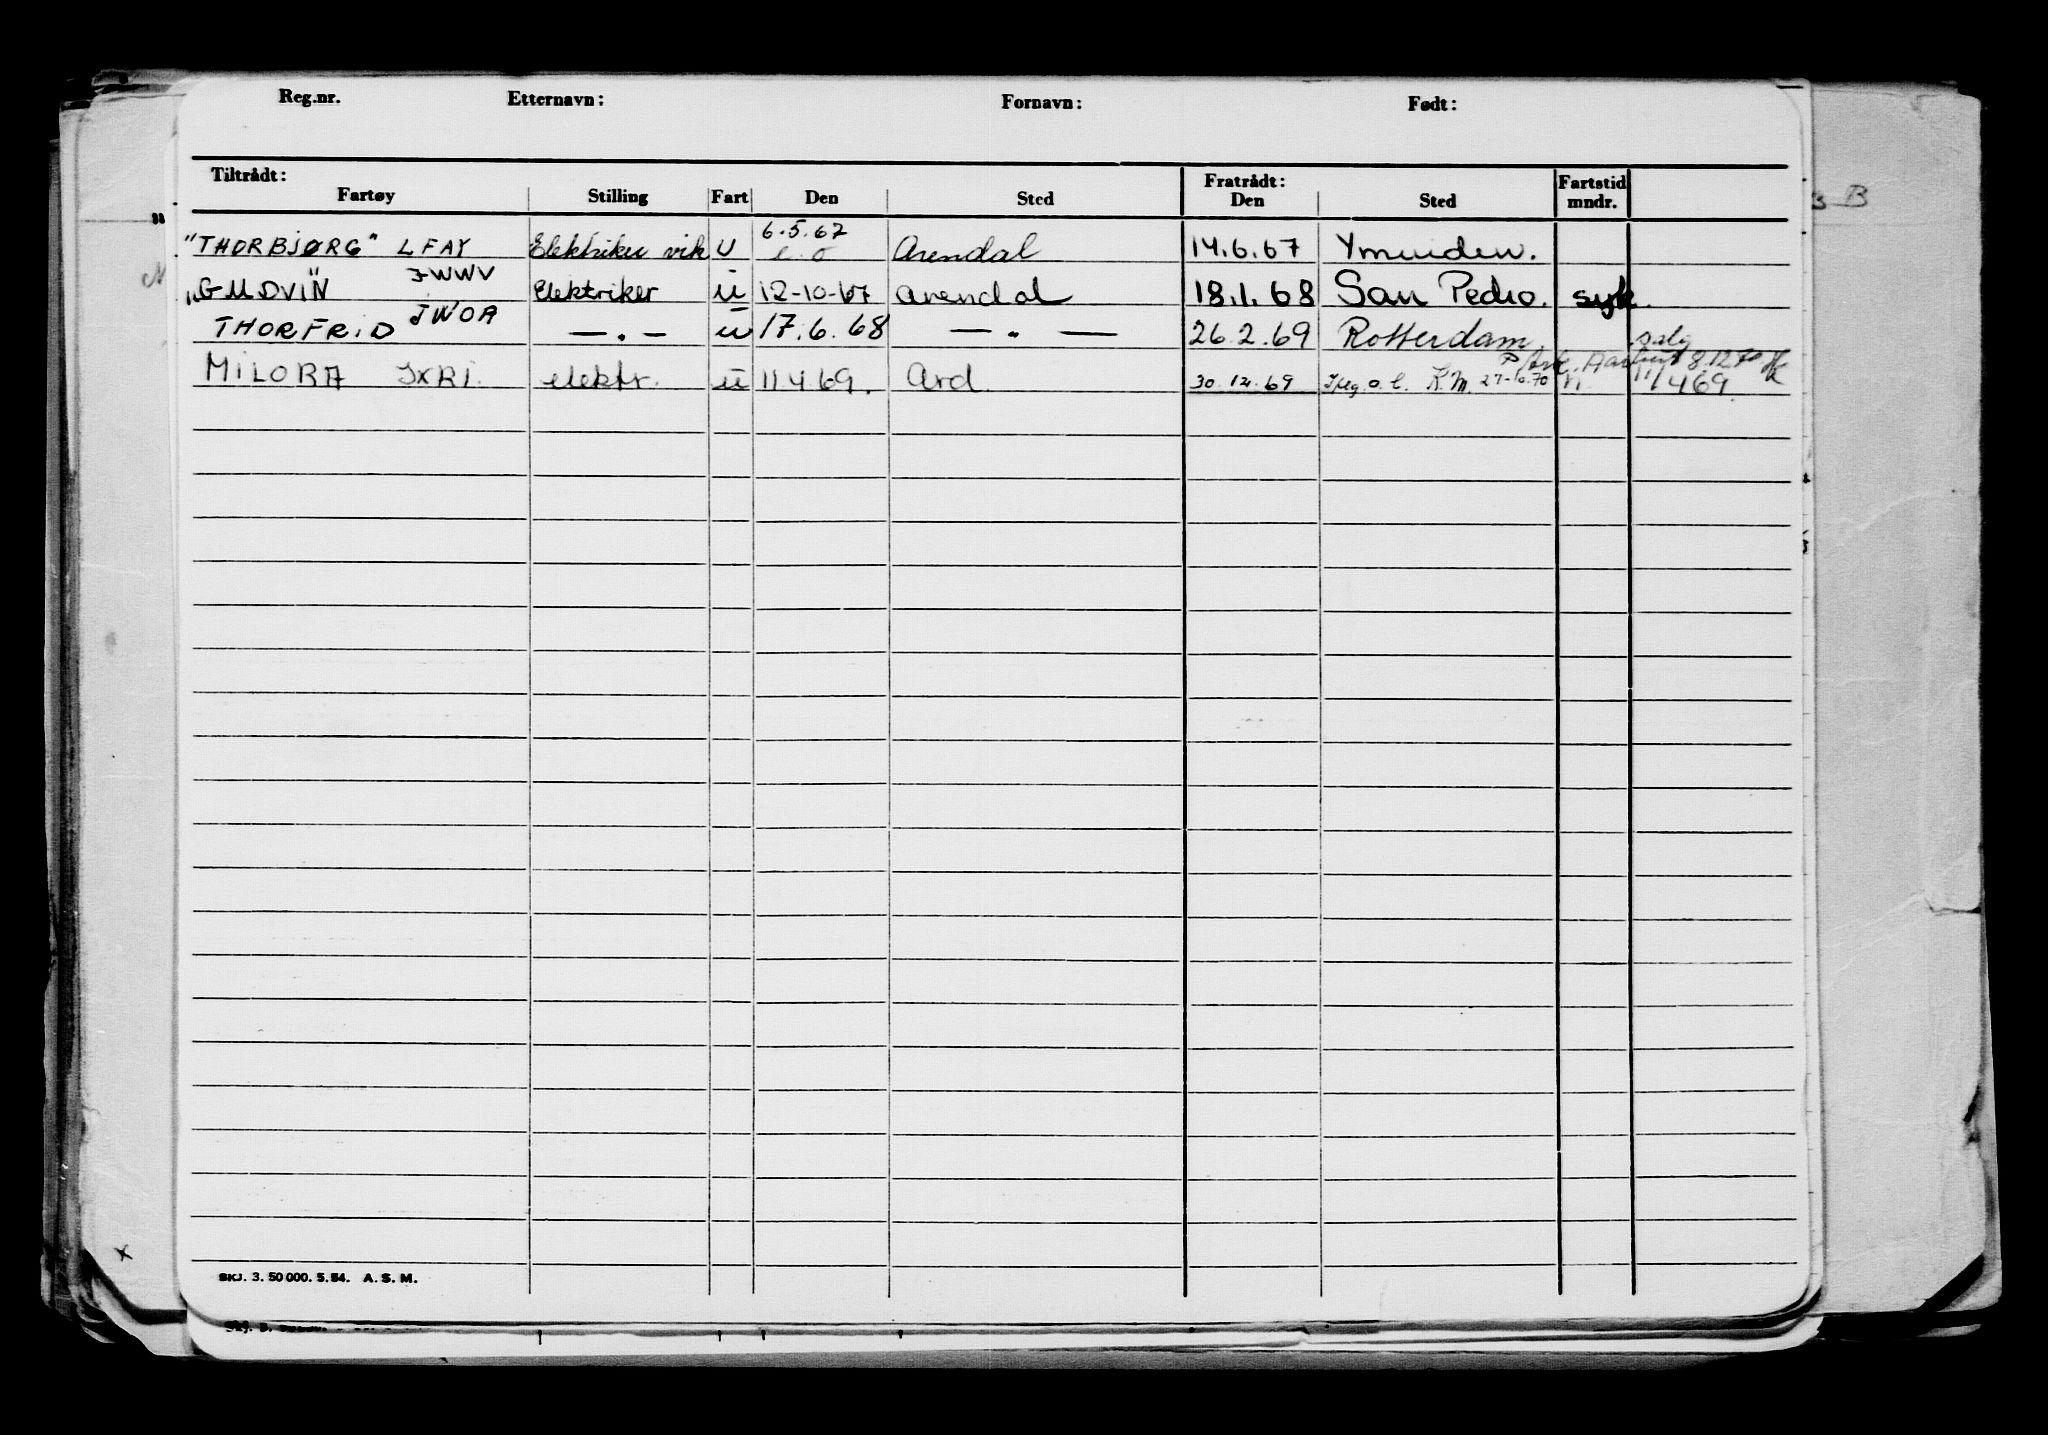 Reg.nr. Etternavn: Fornavn: Født:
Tiltrådt: Fratrådt: Fartstid
Fartøy Stilling Fart Den Sted Den Sted mndr.
"THORBJØRG" LFAY Elektriker vik U 6.5.67 Arendal 14.6.67 Ymuiden.
"GUDVIN" JWWV Elektriker u 12-10-67 Arendal 18.1.68 San Pedro. syk.
THORFRID JWOA — . — u 17.6.68 — . — 26.2.69 Rotterdam salg
MILORA JXRI elektr. u 11.4.69. Ard. 30.12.69 K.M. 27-10.70 11/4 69
SKJ. 3. 50 000. 5. 54. A. S. M.
B
x